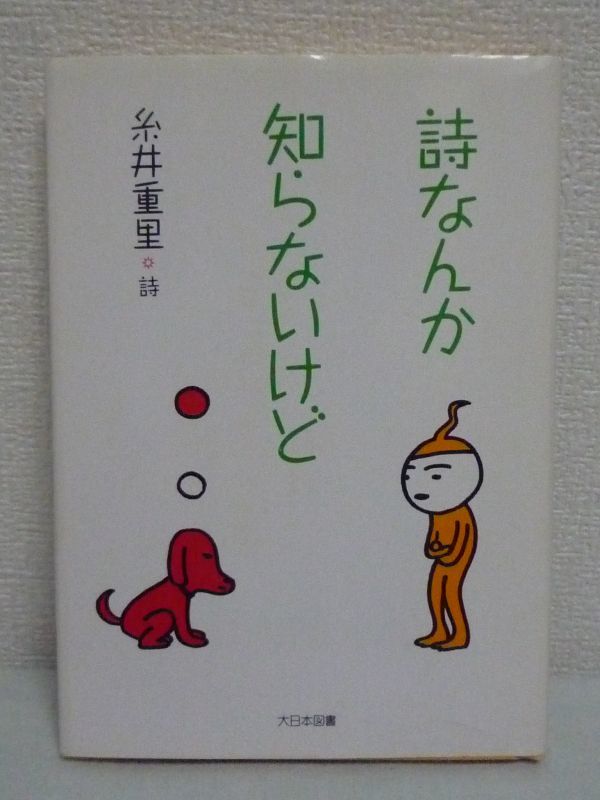 詩なんか
知らないけど
糸井重里☼詩
大日本図書